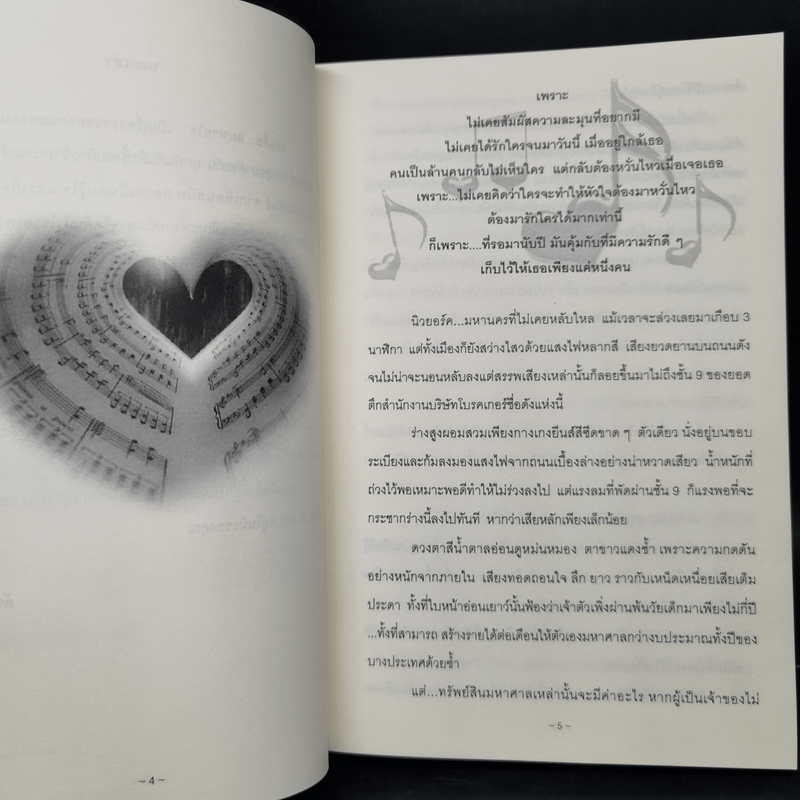 ~ 4 ~
เพราะ
ไม่เคยสัมผัสความละมุนที่อยากมี
ไม่เคยได้รักใครจนมาวันนี้ เมื่ออยู่ใกล้เธอ
คนเป็นล้านคนกลับไม่เห็นใคร แต่กลับต้องหวั่นไหวเมื่อเจอเธอ
เพราะ...ไม่เคยคิดว่าใครจะทำให้หัวใจต้องมาหวั่นไหว
ต้องมารักใครได้มากเท่านี้
ก็เพราะ....ที่รอมานับปี มันคุ้มกับที่มีความรักดี ๆ
เก็บไว้ให้เธอเพียงแค่หนึ่งคน
นิวยอร์ค...มหานครที่ไม่เคยหลับใหล แม้เวลาจะล่วงเลยมาเกือบ 3
นาฬิกา แต่ทั้งเมืองก็ยังสว่างไสวด้วยแสงไฟหลากสี เสียงยวดยานบนถนนดัง
จนไม่น่าจะนอนหลับลงแต่สรรพเสียงเหล่านั้นก็ลอยขึ้นมาไม่ถึงชั้น 9 ของยอด
ตึกสำนักงานบริษัทโบรคเกอร์ชื่อดังแห่งนี้
ร่างสูงผอมสวมเพียงกางเกงยีนส์สีซีดขาด ๆ ตัวเดียว นั่งอยู่บนขอบ
ระเบียงและก้มลงมองแสงไฟจากถนนเบื้องล่างอย่างน่าหวาดเสียว น้ำหนักที่
ถ่วงไว้พอเหมาะพอดีทำให้ไม่ร่วงลงไป แต่แรงลมที่พัดผ่านชั้น 9 ก็แรงพอที่จะ
กระชากร่างนี้ลงไปทันที หากว่าเสียหลักเพียงเล็กน้อย
ดวงตาสีน้ำตาลอ่อนดูหม่นหมอง ตาขาวแดงช้ำ เพราะความกดดัน
อย่างหนักจากภายใน เสียงทอดถอนใจ ลึก ยาว ราวกับเหน็ดเหนื่อยเสียเต็ม
ประดา ทั้งที่ใบหน้าอ่อนเยาว์นั้นฟ้องว่าเจ้าตัวเพิ่งผ่านพ้นวัยเด็กมาเพียงไม่กี่ปี
...ทั้งที่สามารถ สร้างรายได้ต่อเดือนให้ตัวเองมหาศาลกว่างบประมาณทั้งปีของ
บางประเทศด้วยซ้ำ
แต่...ทรัพย์สินมหาศาลเหล่านั้นจะมีค่าอะไร หากผู้เป็นเจ้าของไม่
~ 5 ~